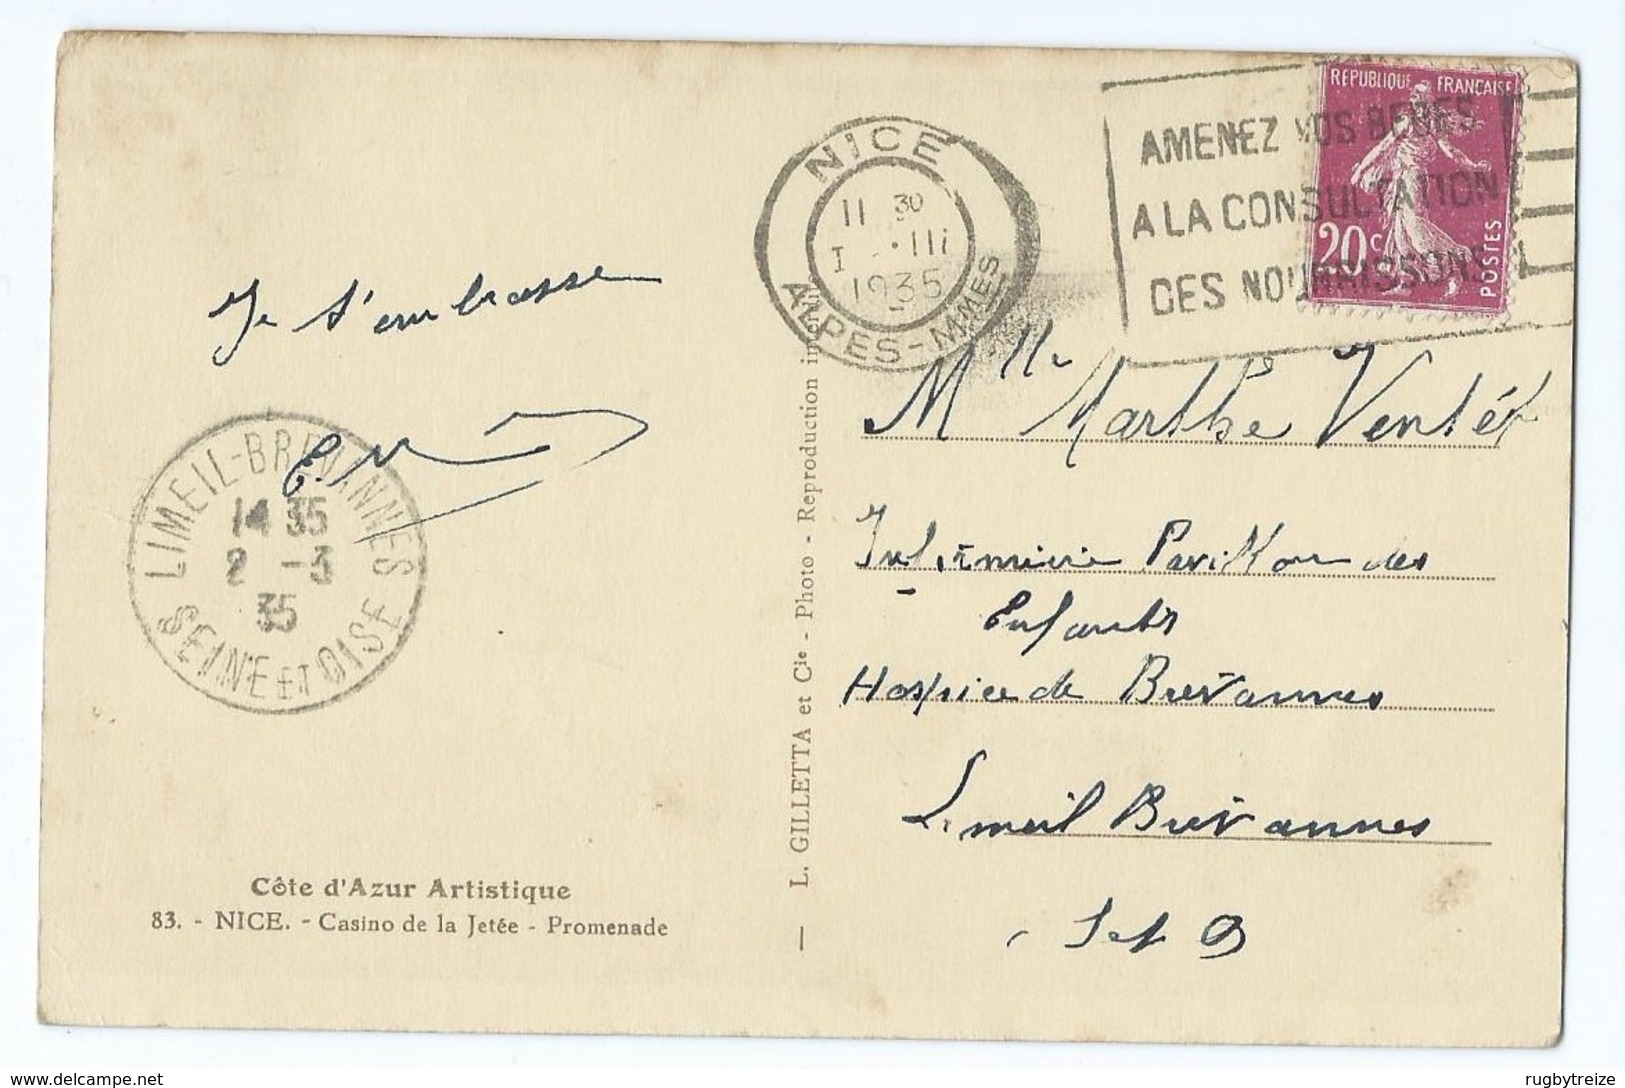 REPUBLIQUE FRANCAISE
20c
POSTES
AMENEZ VOS BEBES
A LA CONSULTATION
DES NOURRISSONS
NICE
11 30
1 - III
1935
ALPES-MMES
Je t'embrasse
LIMEIL-BREVANNES
14 35
2 -3
35
SEINE ET OISE
Côte d'Azur Artistique
83. - NICE. - Casino de la Jetée - Promenade
— L. GILLETTA et Cie - Photo - Reproduction
Mlle Marthe
Infirmière Pavillon des
Enfants
Hospice de Brévannes
Limeil Brévannes
S et O
delcampe.net
rugbytreize